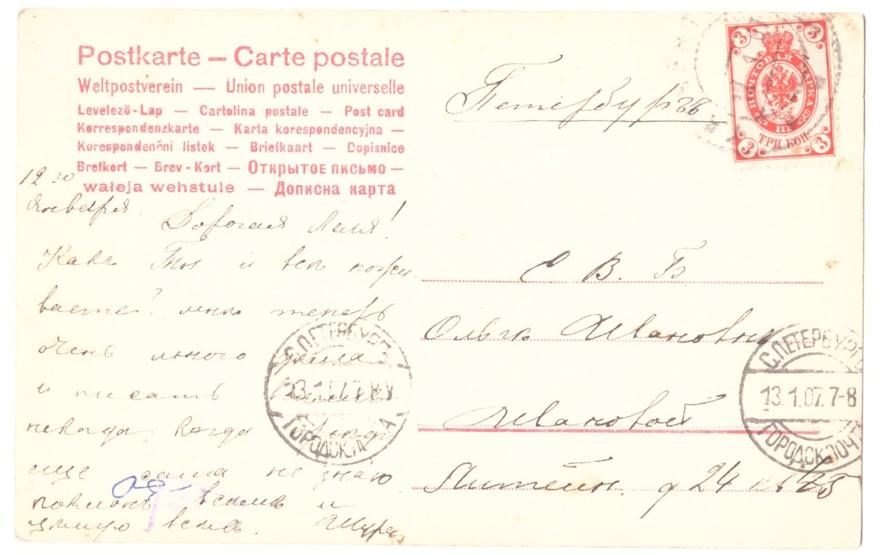 Postkarte — Carte postale
Weltpostverein — Union postale universelle
Levelező-Lap — Cartolina postale — Post card
Korrespondenzkarte — Karta korespondencyjna —
Korespondenční listek — Briefkaart — Dopisnice
Brefkort — Brev-Kort — Открытое письмо —
waleja wehstule — Дописна карта
12
Января
Дорогая Ляля!
Какъ Ты и всѣ пожи
ваете? мнѣ теперь
очень много
и писать
некогда, когда
еще сама не знаю
всѣмъ и
цѣлую всѣхъ. Шура
Петербургъ
3 3
ПОЧТОВАЯ МАРКА
ТРИ КОП.
3 3
Е В. Б
Ольгѣ Ивановнѣ
Ивановой
Литейн. д 24 кв 25
С.ПЕТЕРБУРГЪ
13.1.07.7-8
ГОРОДСК.ПОЧТА
С.ПЕТЕРБУРГЪ
13.1.07.7-8
ГОРОДСК.ПОЧТА